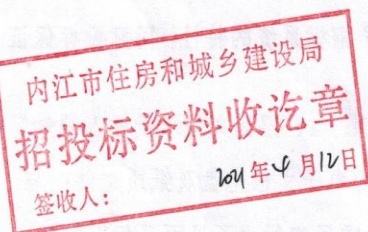 内江市住房和城乡建设局
招投标资料收讫章
签收人： 2021年4月12日